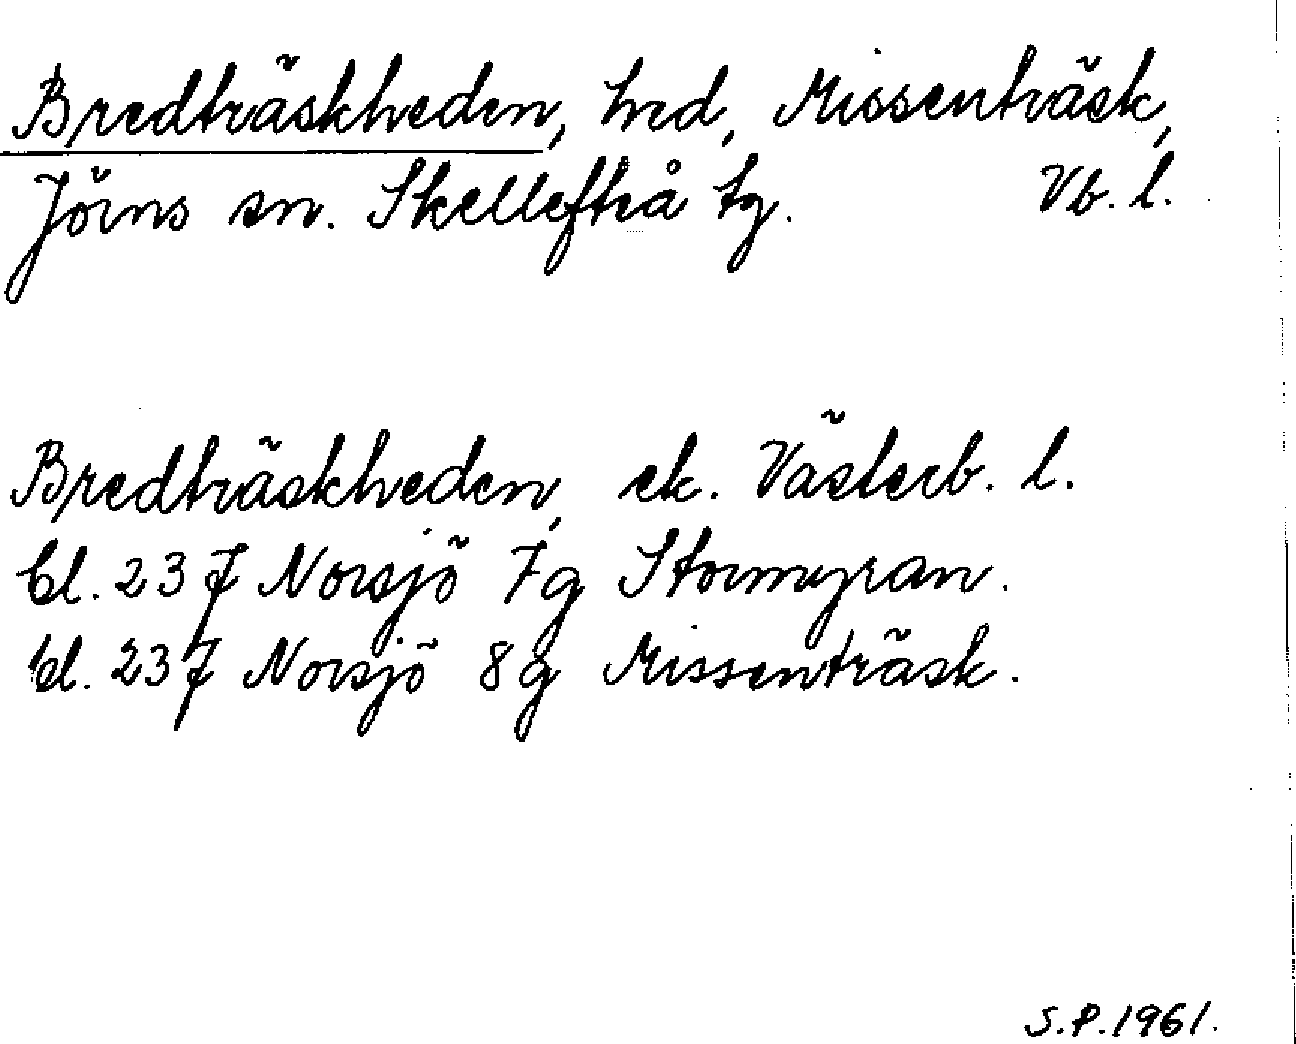 Bredträskheden, hed, Missenträsk,
Jörns sn. Skellefteå tg. Vb. l.
Bredträskheden, ek. Västerb. l.
bl. 23 J Norsjö 7g Stormyran.
bl. 23 J Norsjö 8g Missenträsk.
S.P. 1961.